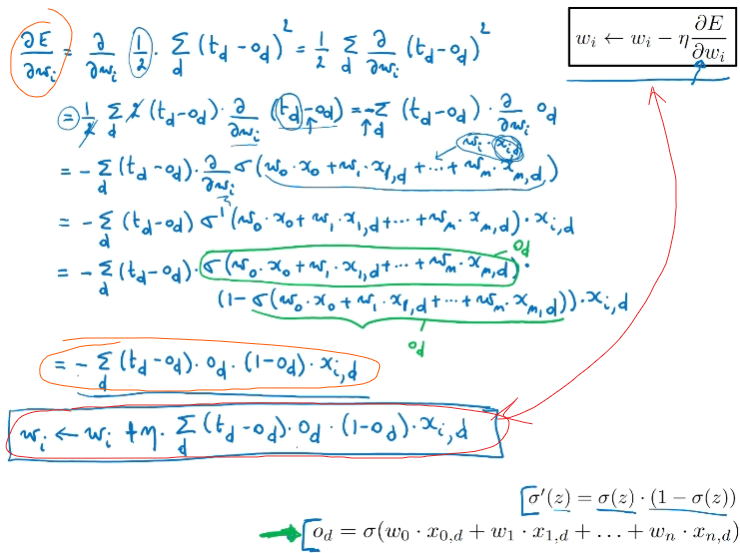 ∂E/∂wᵢ = ∂/∂wᵢ 1/2 · Σ_d (t_d - o_d)² = 1/2 Σ_d ∂/∂wᵢ (t_d - o_d)²
wᵢ ← wᵢ − η ∂E/∂wᵢ
= 1/2 Σ_d 2 (t_d - o_d) · ∂/∂wᵢ (t_d - o_d) = - Σ_d (t_d - o_d) · ∂/∂wᵢ o_d
wᵢ · x_{i,d}
= - Σ_d (t_d - o_d) · ∂/∂wᵢ σ(w₀ · x₀ + w₁ · x_{1,d} + ... + w_m · x_{m,d})
= - Σ_d (t_d - o_d) σ'(w₀ · x₀ + w₁ · x_{1,d} + ... + w_m · x_{m,d}) · x_{i,d}
o_d
= - Σ_d (t_d - o_d) · σ(w₀ · x₀ + w₁ · x_{1,d} + ... + w_m · x_{m,d}) ·
(1 - σ(w₀ · x₀ + w₁ · x_{1,d} + ... + w_m · x_{m,d})) · x_{i,d}
o_d
= - Σ_d (t_d - o_d) · o_d · (1 - o_d) · x_{i,d}
wᵢ ← wᵢ + η · Σ_d (t_d - o_d) · o_d · (1 - o_d) · x_{i,d}
σ′(z) = σ(z) · (1 − σ(z))
o_d = σ(w₀ · x_{0,d} + w₁ · x_{1,d} + ... + w_n · x_{n,d})